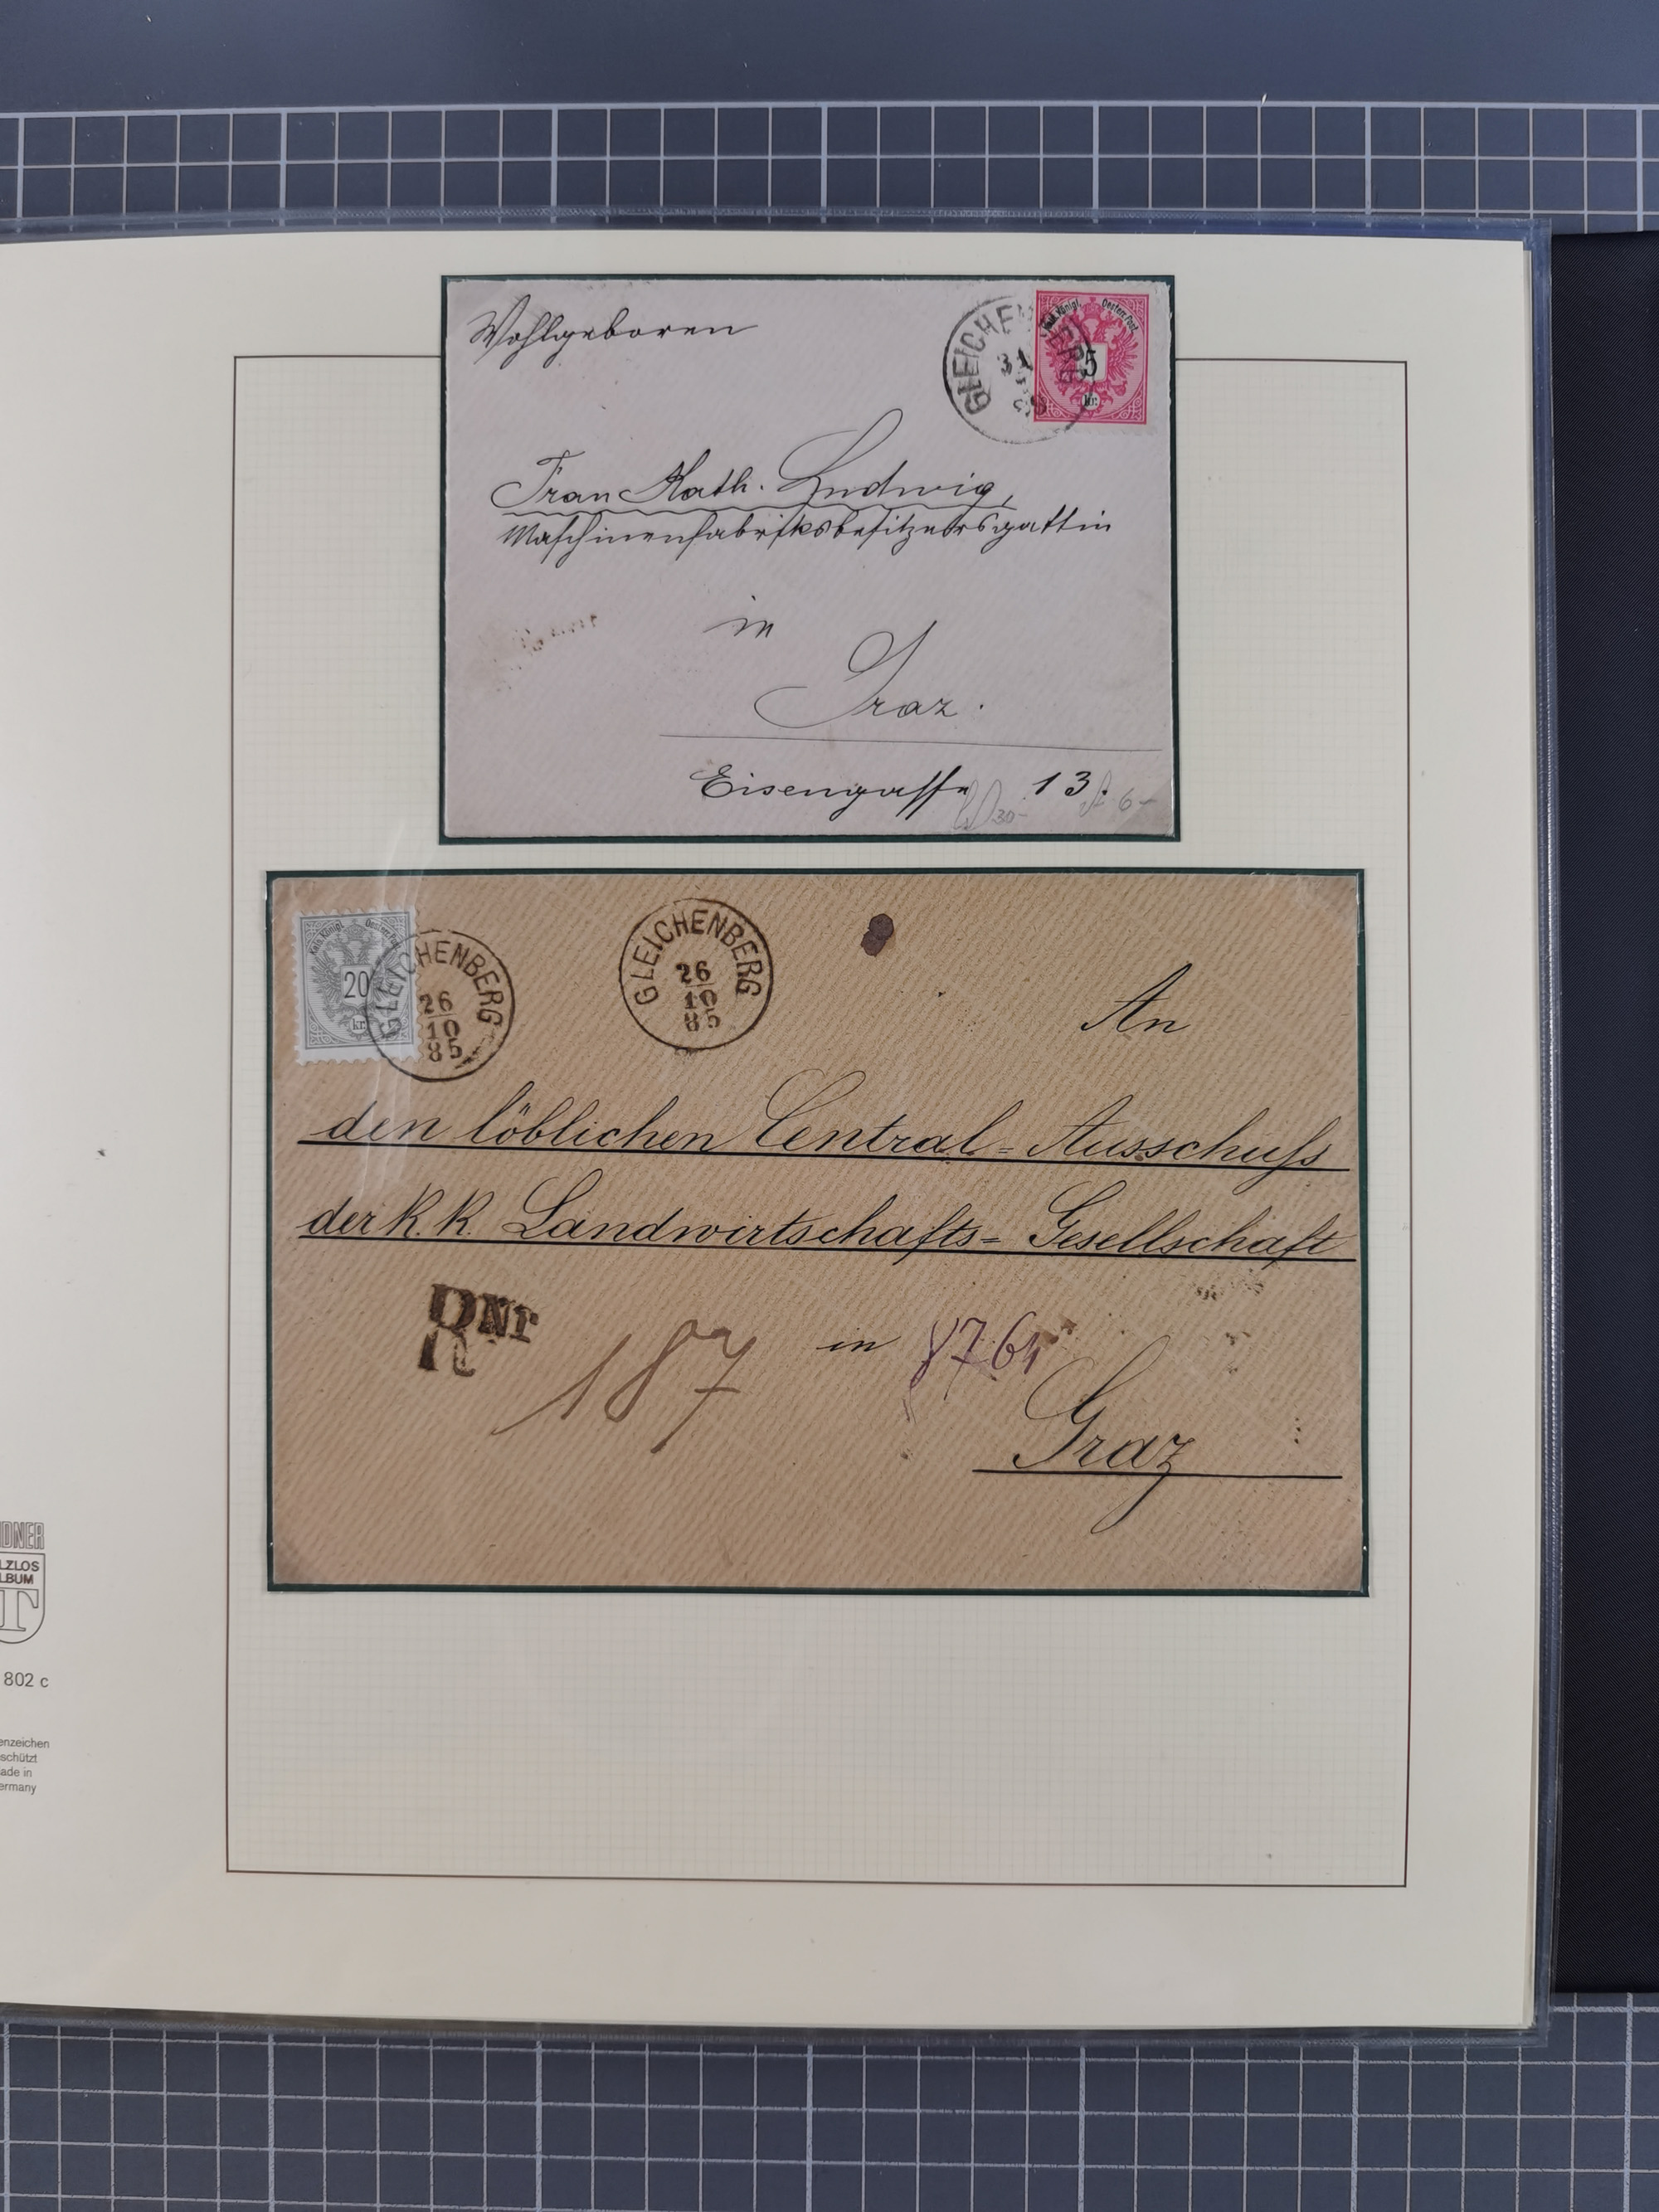 Wohlgeboren
GLEICHENBERG
31
Kais. Königl. Oesterr. Post.
5
kr.
Frau Kath. Ludwig,
Maschinenfabriksbesitzersgattin
in
Graz.
Eisengasse 13.
30-
6-
Kais. Königl. Oesterr. Post.
20
kr.
GLEICHENBERG
26
10
85
GLEICHENBERG
26
10
85
An
den löblichen Central-Ausschuß
der k. k. Landwirtschafts-Gesellschaft
R Nr
187
in
8764
Graz
DNER
LZLOS
LBUM
T
802 c
enzeichen
schützt
ade in
ermany